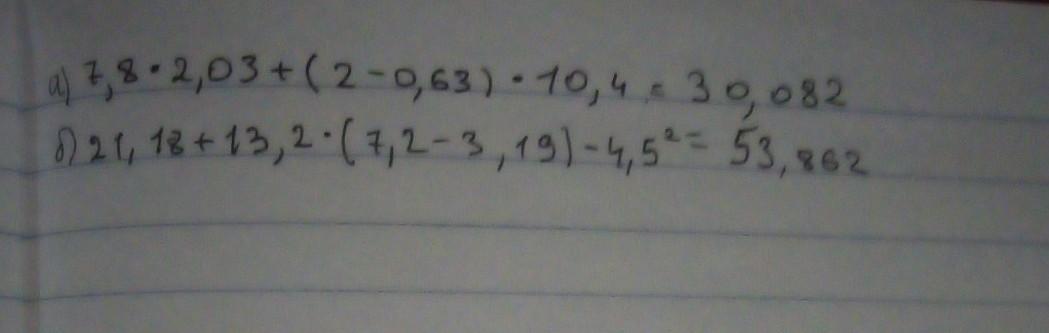 а) 7,8·2,03+(2-0,63)·10,4=30,082
б) 21,18+13,2·(7,2-3,19)-4,5²=53,862